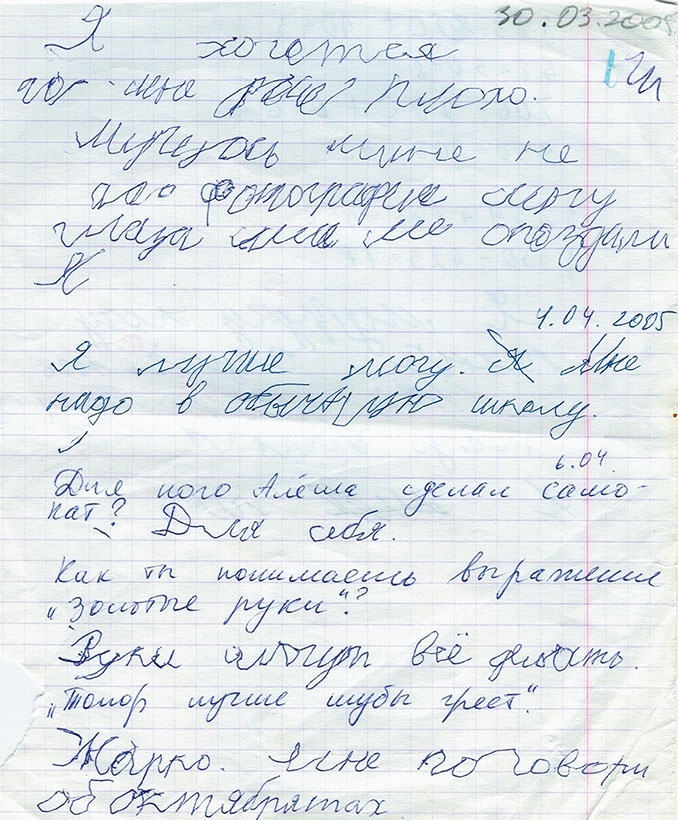 30.03.2005
Я хочется
мне плохо.
Мучаюсь мине не
фотографие могу
глаза мне не опоздали
Я
4.04.2005
Я лучше могу. Я Мне
надо в обычную школу.
6.04.
Для кого Алёша сделал само-
кат? Для себя.
Как ты понимаешь выражение
„Золотые руки“?
Руки могут всё делать.
„Топор лучше шубы греет“.
Жарко. Мне поговори
об октябрятах